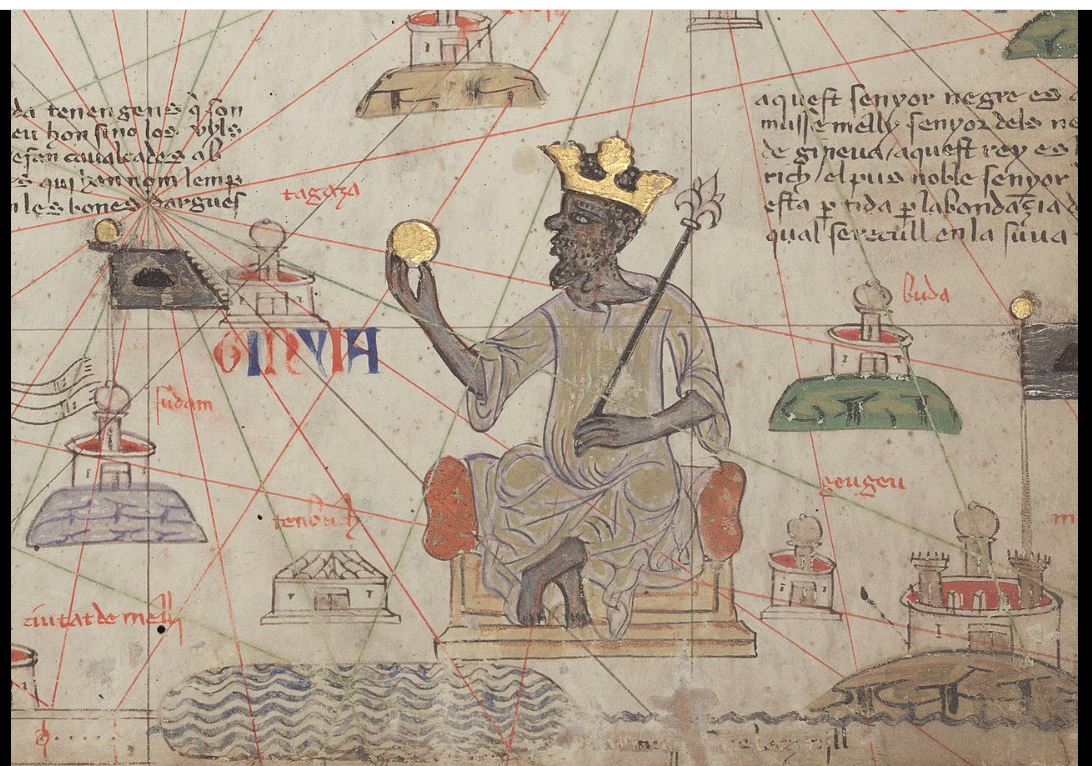 da tenen gens q̃ son
eu hon sino los vyls
e fan caualcades ab
s qui han nom lemp
les bones dargues
tagaza
GINVIA
sudam
tenbuch
ciutat de melly
aquest senyor negre es
musse melly senyor dels ne
de gineua aquest rey es l
rich el pus noble senyor
esta ꝑtida ꝑ labondaçia d
qual se recull en la suua
buda
geugeu
m